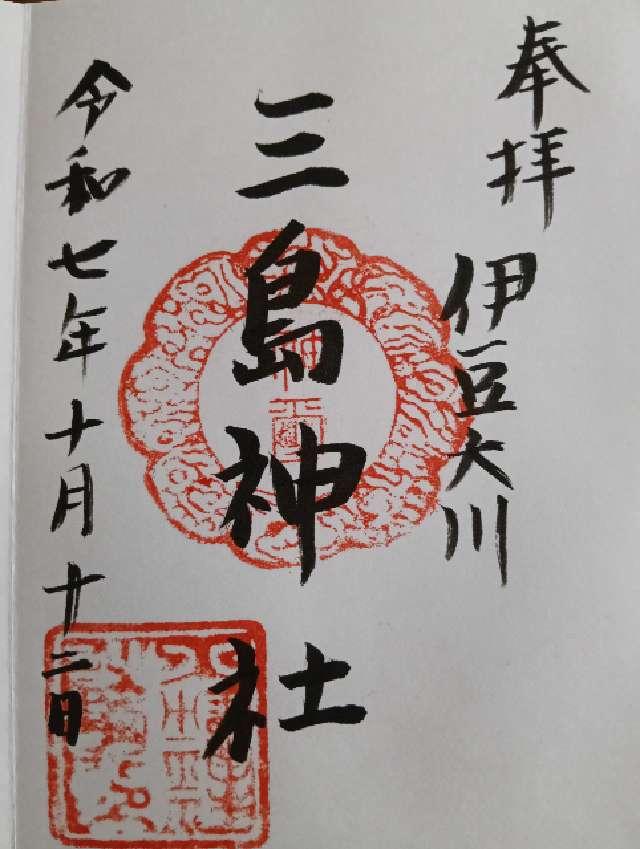 奉拝
伊豆大川
三島神社
令和七年十月十二日